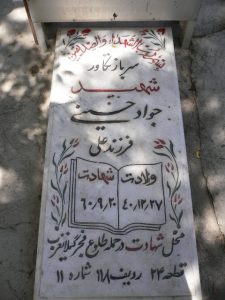 سرباز تکاور
شهید
جواد حسینی
فرزند علی
ولادت شهادت
۴۰/۱۲/۲۷ ۶۰/۹/۲۰
محل شهادت در حمله طلوع فجر گیلانغرب
قطعه ۲۴ ردیف ۱۱۸ شماره ۱۱